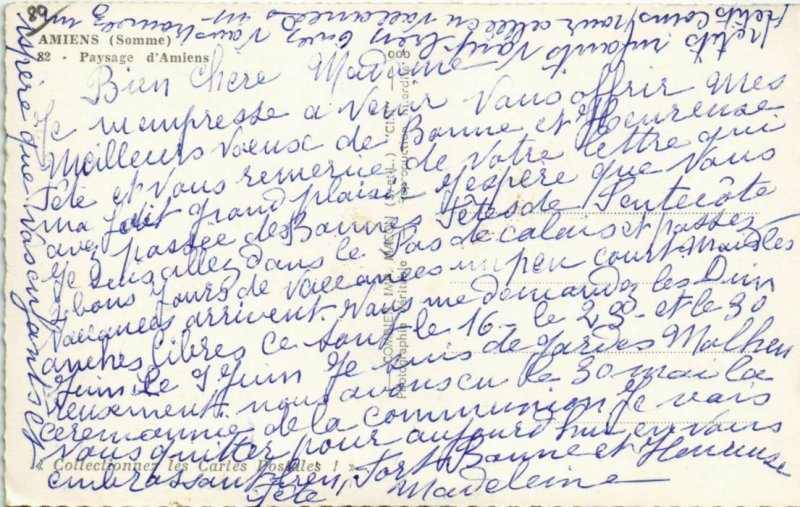 89
AMIENS (Somme)
82 - Paysage d'Amiens
Bien Chère Madame
Je m'empresse a venir vous offrir mes
Meilleurs Voeux de Bonne et Heureuse
Fête et vous remercie de Votre lettre qui
ma fait grand plaisir j'espère que Vous
avez passée des Bonnes Fêtes de Pentecôte
Je suis allez dans le Pas de calais et passez
3 bons jours de vacances un peu court mais les
Vacances arrivent. Vous me demandez les Dim
anches libres ce sont le 16 - le 23 - et le 30
Juin le 9 Juin Je suis de gardes Malheu
reusement. nous avons eu le 30 mai la
ceremonnie de la communion Je vais
Vous quitter pour aujourd'hui en Vous
embrassant bien Fort Bonne et Heureuse
Fête Madeleine
« Collectionnez les Cartes Postales ! »
espère que vos enfants et
petits enfants vont bien
Photographie véritable
reproduction interdite